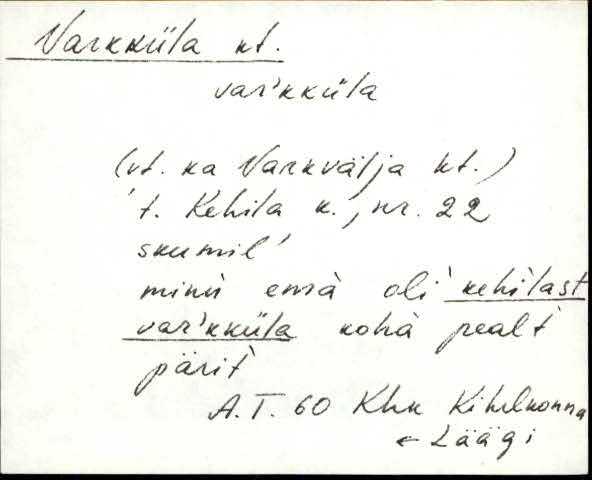 Varkküla kt.
var'kküla
(vt. ka Varkvälja kt.)
't. Kehila k., nr. 22
skumil'
minù emà oli kehìlast
var'kküla kohà pealt
pärit
A.T. 60 Khk Kihelkonna
← Läägi